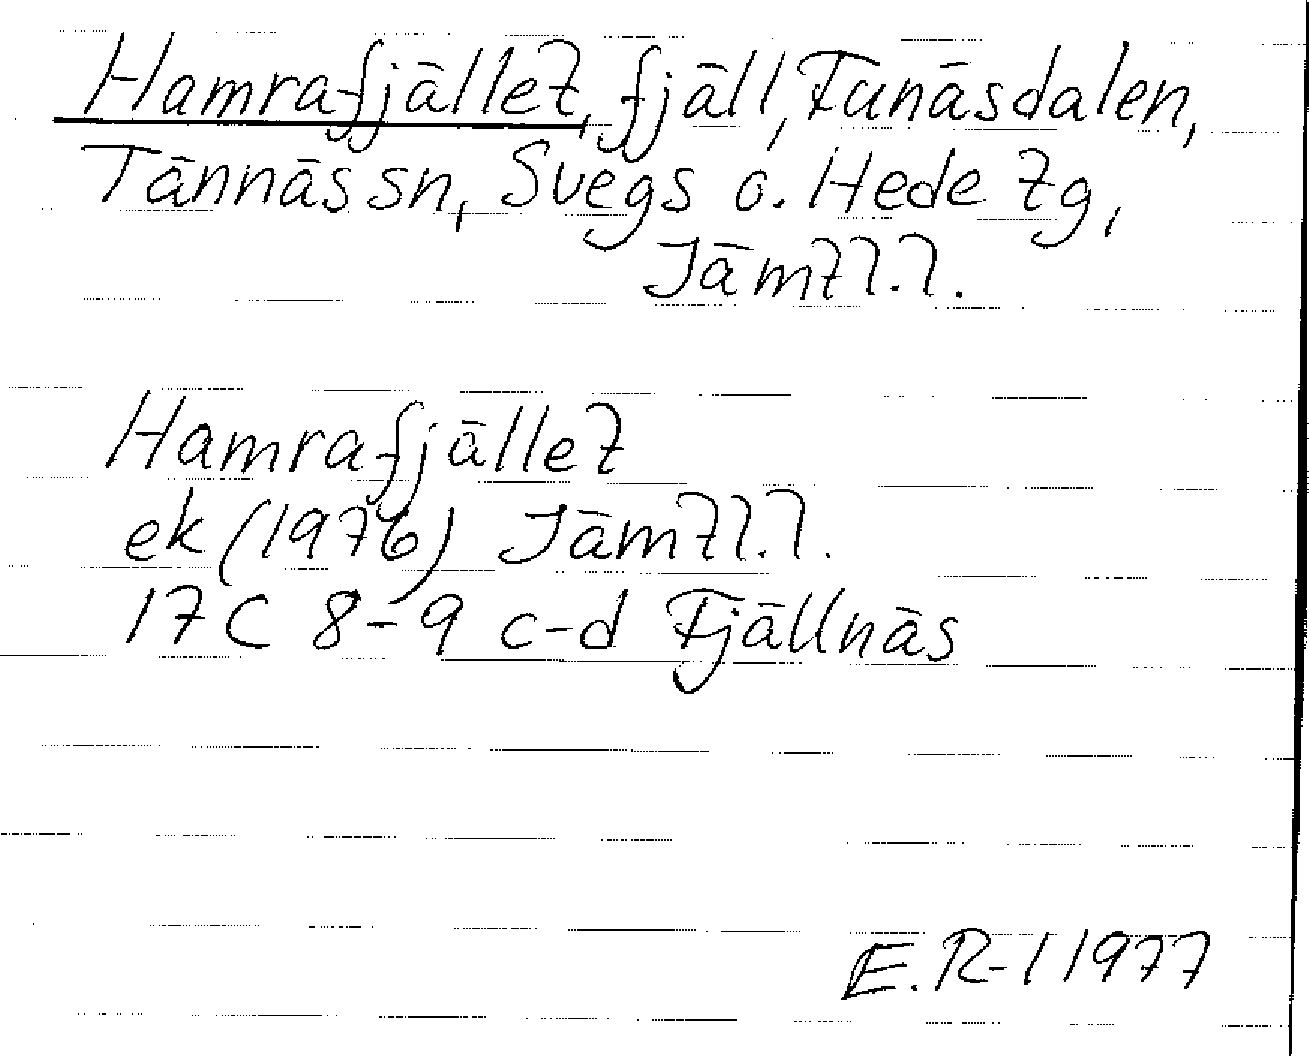 Hamrafjället, fjäll, Funäsdalen,
Tännäs sn, Svegs o. Hede tg,
Jämtl.l.
Hamrafjället
ek (1976) Jämtl.l.
17C 8-9 c-d Fjällnäs
E.R-l 1977